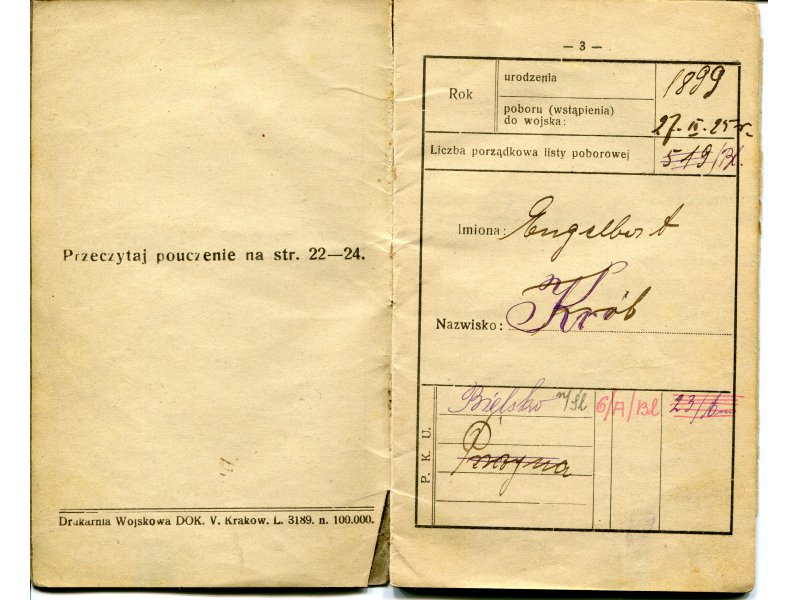 Przeczytaj pouczenie na str. 22—24.
Drukarnia Wojskowa DOK. V. Krakow. L. 3189. n. 100.000.
— 3 —
Rok
urodzenia
1899
poboru (wstąpienia)
do wojska:
27. II. 25 r.
Liczba porządkowa listy poborowej
519/Bl.
Imiona: Engelbert
Nazwisko: Krób
P. K. U.
Bielsko n/Sl 6/A/Bl 23/6